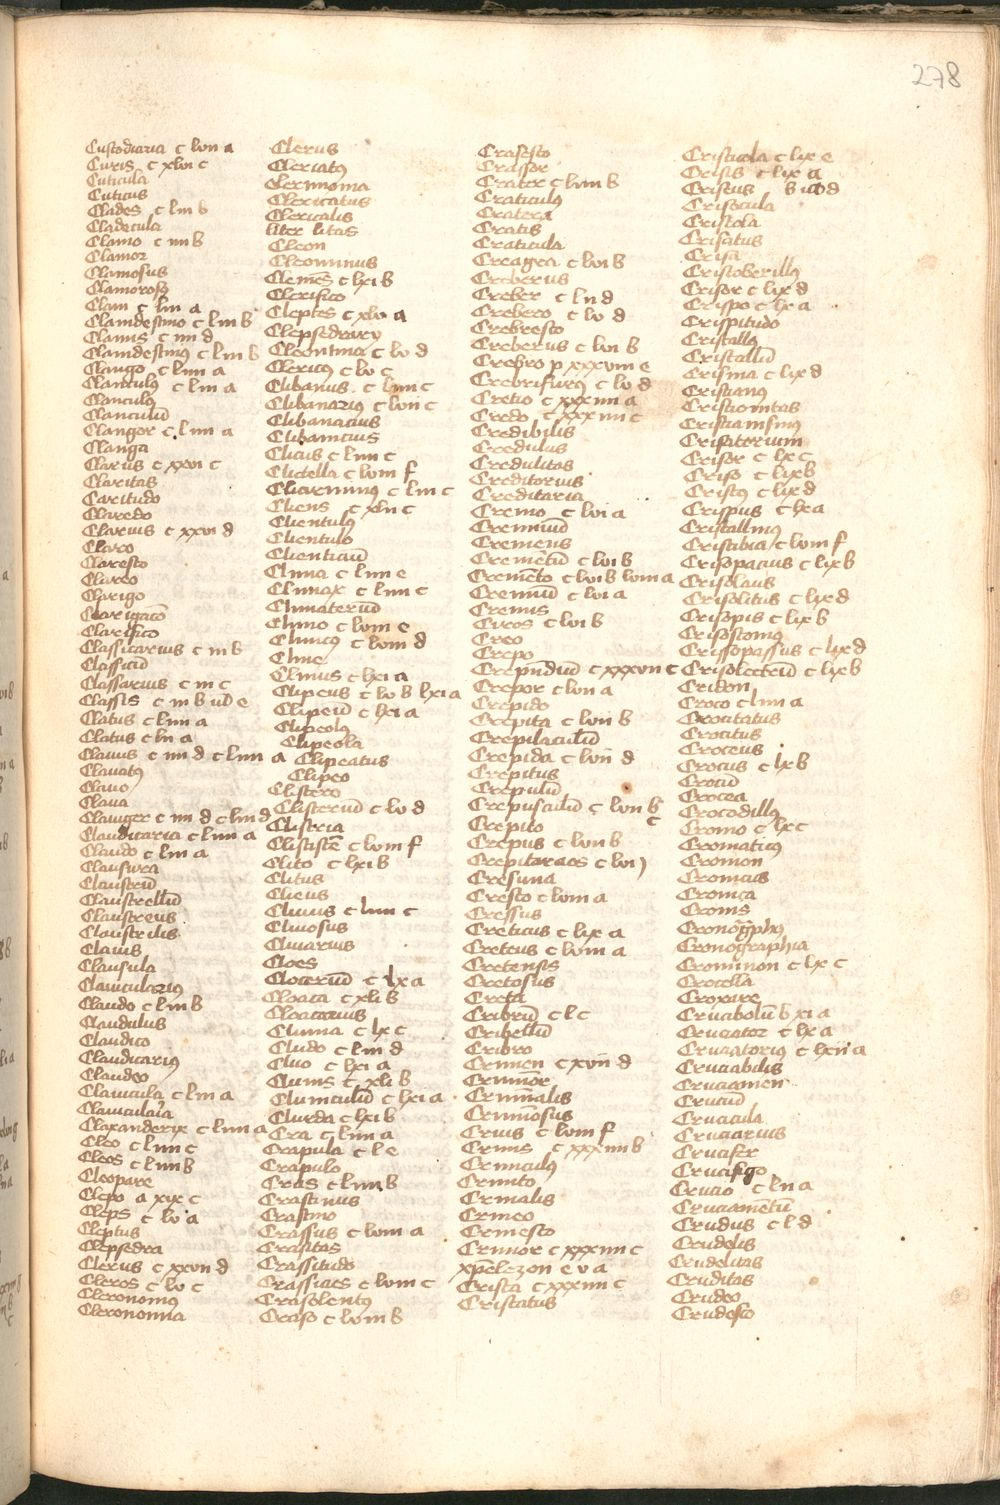 278
Custodiaria c lvii a
Curis c xlvi c
Cuticula
Cuticus
Clades c liii b
Cladecula
Clamo c iiii b
Clamor
Clamosus
Clamorosꝰ
Clam c liii a
Clamdestino c liii b
Clamis c iiii d
Clamdestinꝰ c liii b
Clango c liiii a
Clanculꝰ c liii a
Clanculꝰ
Clanculū
Clangor c liiii a
Clanga
Clarus c xxvi c
Claritas
Claritudo
Claredo
Clarius c xxvi d
Claro
Claresco
Clareo
Clarigo
Clarigacō
Clarifico
Classicarius c iii b
Classicū
Classarius c iii c
Classis c iii b ul e
Clatus c liiii a
Clatus c lii a
Clauus c iiii d c liiii a
Clauatꝰ
Clauo
Claua
Clauiger c iiii d c liii d
Clauditaria c liiii a
Claudo c liii a
Clausura
Claustrū
Claustrellū
Claustreus
Claustrilis
Clauis
Clausula
Clauicularius
Claudo c liiii b
Claudulus
Claudico
Claudicariꝰ
Claudeo
Clauicula c liii a
Clauicularia
Claxanderix c liiii a
Cleo c liiii c
Cleos c liiii b
Cleopare
Clepo a xix c
Cleps c lv a
Cleptus
Clepsedra
Clerus c xxvii d
Cleros c lv c
Cleronomꝰ
Cleronomia
Clerus
Clericatꝰ
Clerimonia
Clericatus
Clericalis
liter litas
Cleon
Cleominus
Clemēs c lxi b
Clerifico
Cleptes c xlv a
Clepsedrarex
Cleontina c lv d
Clericꝰ c lv c
Clibanus c liiii c
Clibanariꝰ c lvii c
Clibanacius
Clibanicius
Clicus c liiii c
Clitella c lviii f
Clicerninꝰ c liii c
Cliens c xlii c
Clientulꝰ
Clientulo
Clienticū
Clima c liiii e
Climax c liiii c
Climaterū
Climo c lviii e
Climicꝰ c lviii d
Cline
Clinus c lxi a
Clipeus c lv b lxi a
Clipeū c lxi a
Clipeolꝰ
Clipeola
Clipeatus
Clipeo
Clistero
Clisteriū c lv d
Clistria
Clististē c lviii f
Clito c lxi b
Clitus
Clieus
Cliuus c liiii c
Cliuosus
Cliuarius
Cloes
Clocerū c lx a
Cloaca c xli b
Cloacarius
Cluma c lx c
Cludo c liii d
Cluo c lxi a
Clunis c xli b
Cluniculū c lxi a
Cluerda c lxi b
Cra c liiii a
Crapula c l e
Crapulo
Cras c liiii b
Crastinus
Crastino
Crassus c lviii a
Crassitas
Crassitudo
Crassicies c lviii c
Crasolentꝰ
Craso c lviii b
Crasesco
Crassor
Crater c lviii b
Craticulꝰ
Cratera
Cratis
Craticula
Creagra c lvi b
Creberus
Creber c lii d
Crebero c lv d
Crebresco
Creberus c lvi b
Crebro p xxxviii e
Crebrisurꝰ c lv d
Cretio c xxxiiii a
Credo c xxxiiii c
Credibilis
Credulus
Credulitas
Creditorius
Creditaria
Cremo c lvi a
Cremiuū
Cremens
Cremētū c lvi b
Cremēto c lvi b lviii a
Cremiū c lvi a
Cremis
Creos c lvi b
Creo
Crepo
Crepūdiū c xxxvii c
Crepor c lvii a
Crepido
Crepita c lvii b
Crepilaculū
Crepida c lvii d
Crepitus
Crepulū
Crepusculū c lvii b
c
Crepito
Crepus c lvii b
Crepitaraos c lvi
Cresuna
Cresco c lviii a
Cressus
Creticus c lix a
Creteus c lviii a
Cretensis
Cretosus
Creta
Cribrū c l c
Cribellū
Cribro
Crimen c xvii d
Criminor
Criminalis
Criminosus
Crius c lviii f
Crinis c xxxiiii b
Criniculꝰ
Crinito
Crinalis
Crineo
Crinesco
Crinior c xxxiiii c
xpēlezon e v a
Crista c xxxiiii c
Cristatus
Cristicola c lix e
Crisis c lix a
Cristus b ii d
Crisocula
Cristola
Crisatus
Crisa
Cristoberillꝰ
Crisor c lix d
Crispo c lx a
Crispitudo
Cristallꝰ
Cristallū
Crisma c lix d
Cristianꝰ
Cristianitas
Cristianismꝰ
Crisitorium
Crisor c lx c
Criso c lix b
Cristꝰ c lix d
Crispus c lx a
Cristallinꝰ
Cristibia c lviii f
Crisopacius c lix b
Crisolaus
Crisolitus c lix d
Crisopis c lix b
Crisostomꝰ
Crissopassus c lix d
Crisolectrū c lix b
Cridon
Croco c liiii a
Crocitatus
Crocitus
Croceus
Crocus c lx b
Crocū
Crocea
Crocodillꝰ
Cromo c lx c
Cromaticꝰ
Cromon
Cronicus
Cronica
Cronis
Cronogphꝰ
Cronographia
Crominon c lx c
Crocella
Croxare
Crucabolū b xi a
Cruciator c lx a
Cruciatorius c lxii a
Cruciabilis
Cruciamen
Cruciū
Cruciacula
Cruciarius
Crucifer
Crucifigo
Crucio c lii a
Cruciamētū
Crudus c l d
Crudelis
Crudelitas
Cruditas
Crudeo
Crudesco